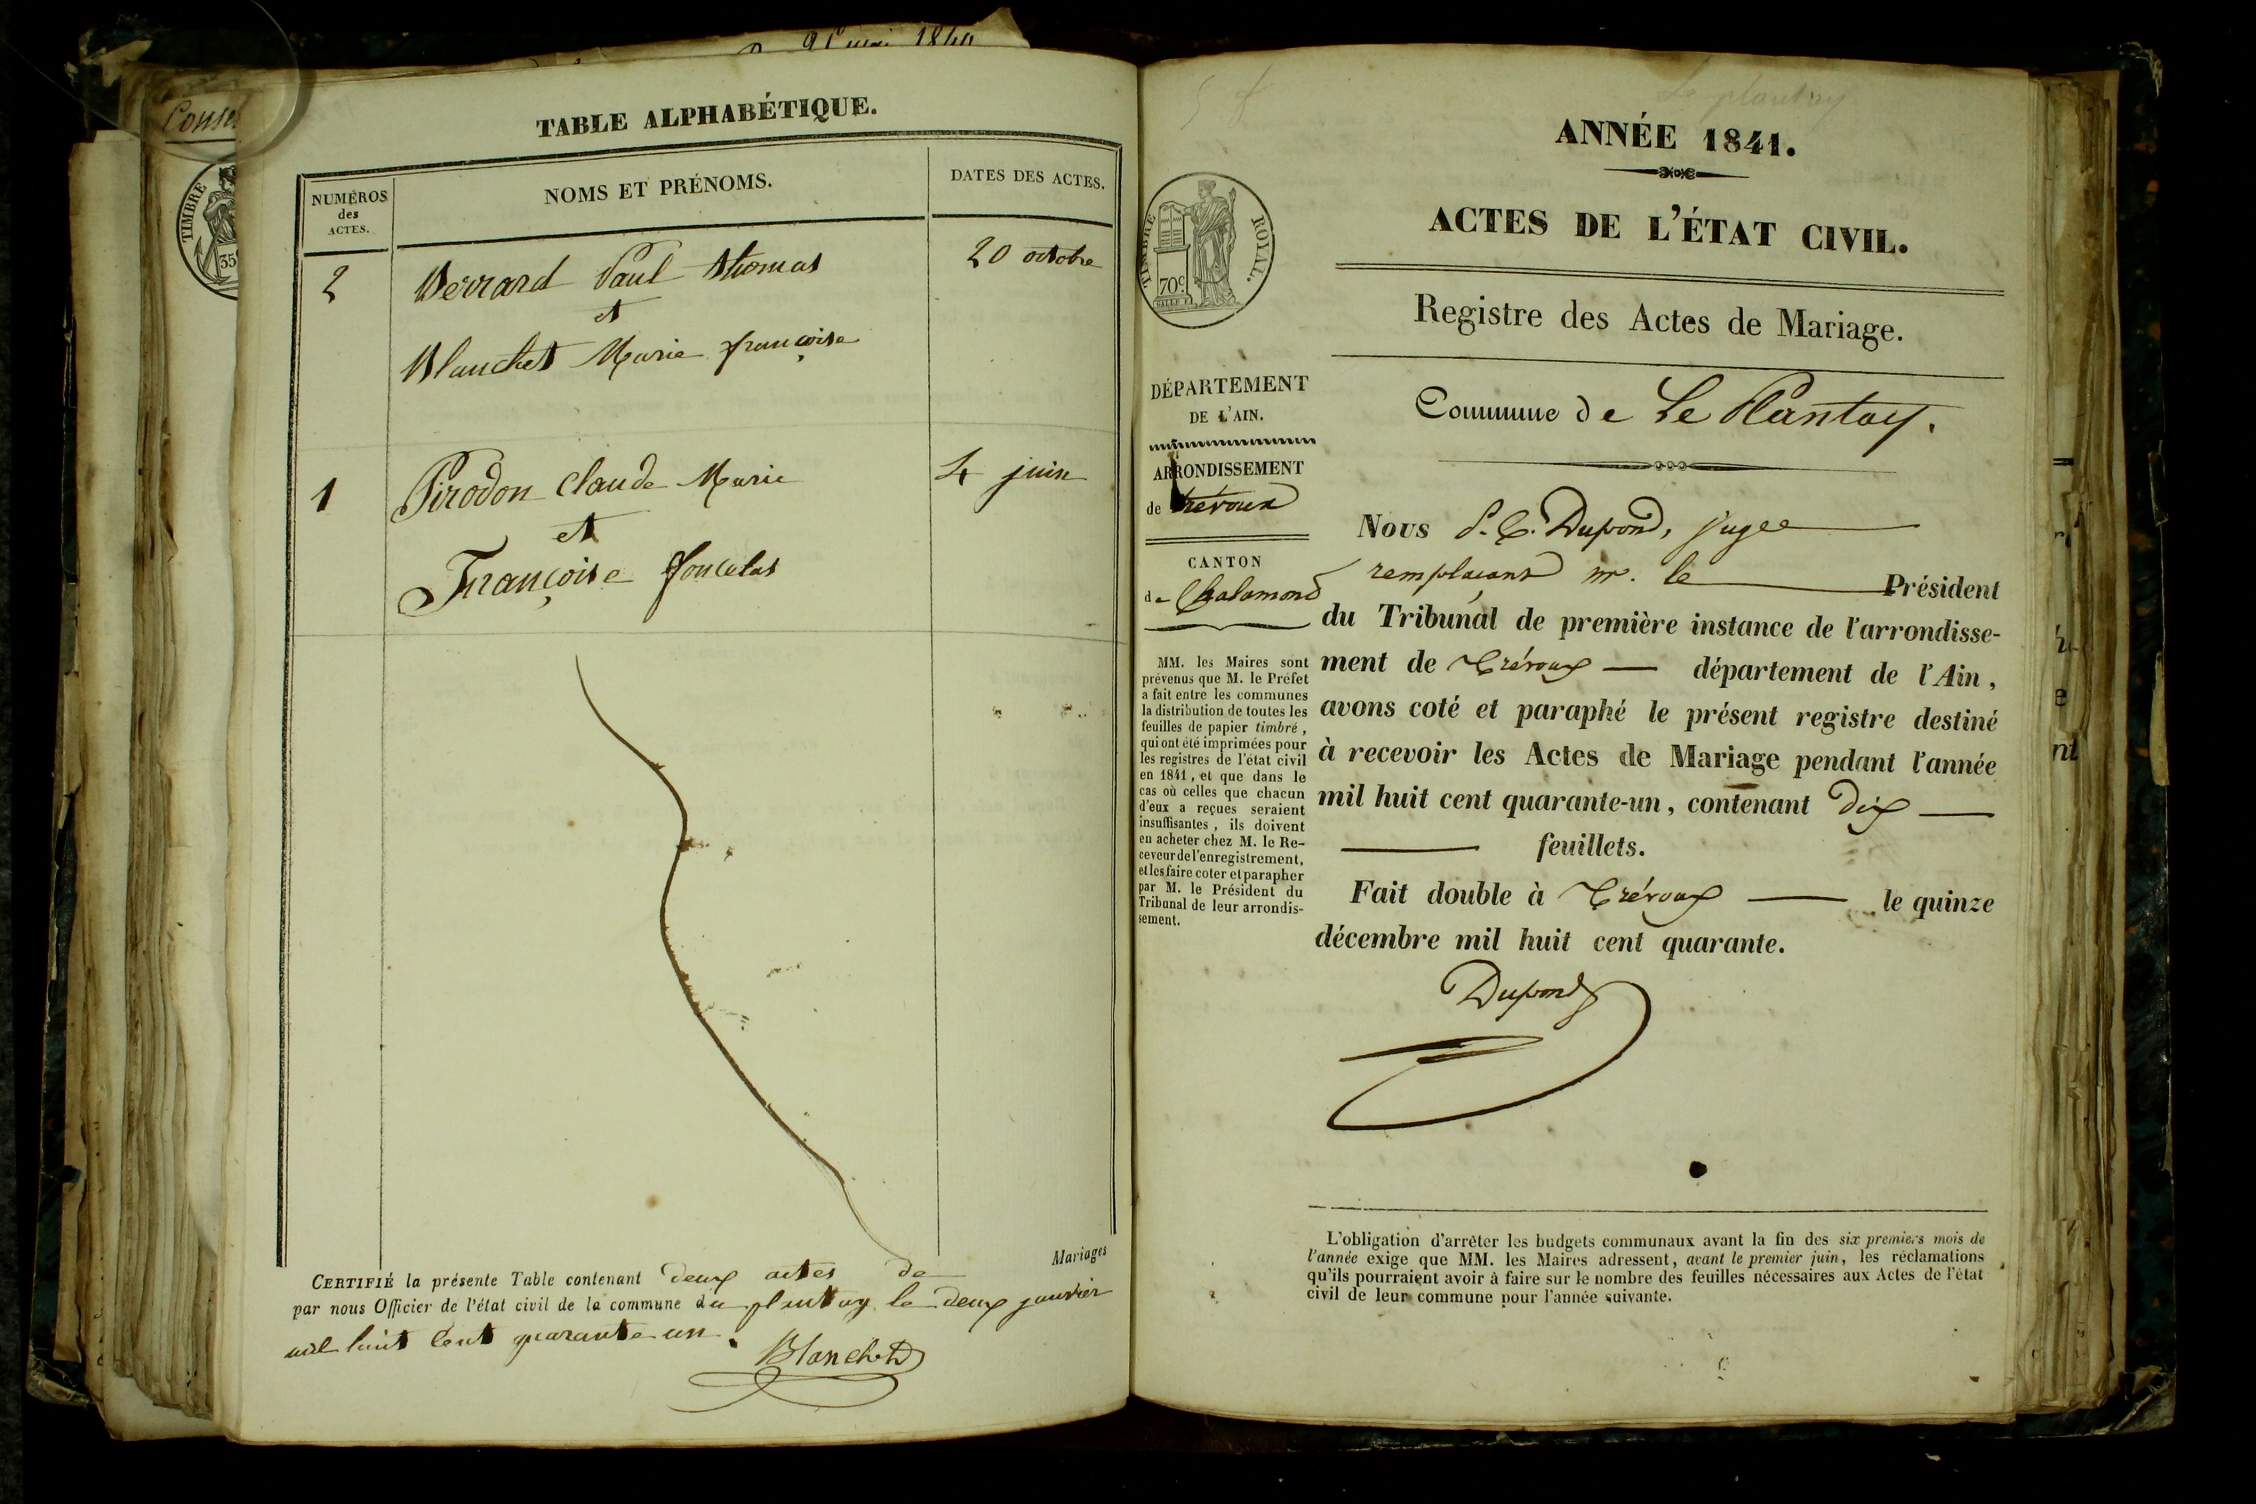 25 mai 1840
Conse
TIMBRE
35
TABLE ALPHABÉTIQUE.
NUMÉROS
des
ACTES.
NOMS ET PRÉNOMS.
DATES DES ACTES.
2
Berrard Paul Thomas
20 octobre
et
Blanchet Marie françoise
1
Pirodon Claude Marie
4 juin
et
Françoise
Mariages
CERTIFIÉ la présente Table contenant deux actes de
par nous Officier de l'état civil de la commune du plantay le deux janvier
mil huit Cent quarante un.
Blanchet
Le plantay
ANNÉE 1841.
ACTES DE L'ÉTAT CIVIL.
TIMBRE ROYAL.
70c
Registre des Actes de Mariage.
DÉPARTEMENT
DE L'AIN.
Commune de Le Plantay.
ARRONDISSEMENT
de Trévoux
CANTON
de Chalamond
MM. les Maires sont
prévenus que M. le Préfet
a fait entre les communes
la distribution de toutes les
feuilles de papier timbré,
qui ont été imprimées pour
les registres de l'état civil
en 1841, et que dans le
cas où celles que chacun
d'eux a reçues seraient
insuffisantes, ils doivent
en acheter chez M. le Re-
ceveur de l'enregistrement,
et les faire coter et parapher
par M. le Président du
Tribunal de leur arrondis-
sement.
Nous P. C. Dupond, juge
remplaçant mr. le Président
du Tribunal de première instance de l'arrondisse-
ment de Trévoux département de l'Ain,
avons coté et paraphé le présent registre destiné
à recevoir les Actes de Mariage pendant l'année
mil huit cent quarante-un, contenant Dix
feuillets.
Fait double à Trévoux le quinze
décembre mil huit cent quarante.
Dupond
L'obligation d'arrêter les budgets communaux avant la fin des six premiers mois de
l'année exige que MM. les Maires adressent, avant le premier juin, les réclamations
qu'ils pourraient avoir à faire sur le nombre des feuilles nécessaires aux Actes de l'état
civil de leur commune pour l'année suivante.